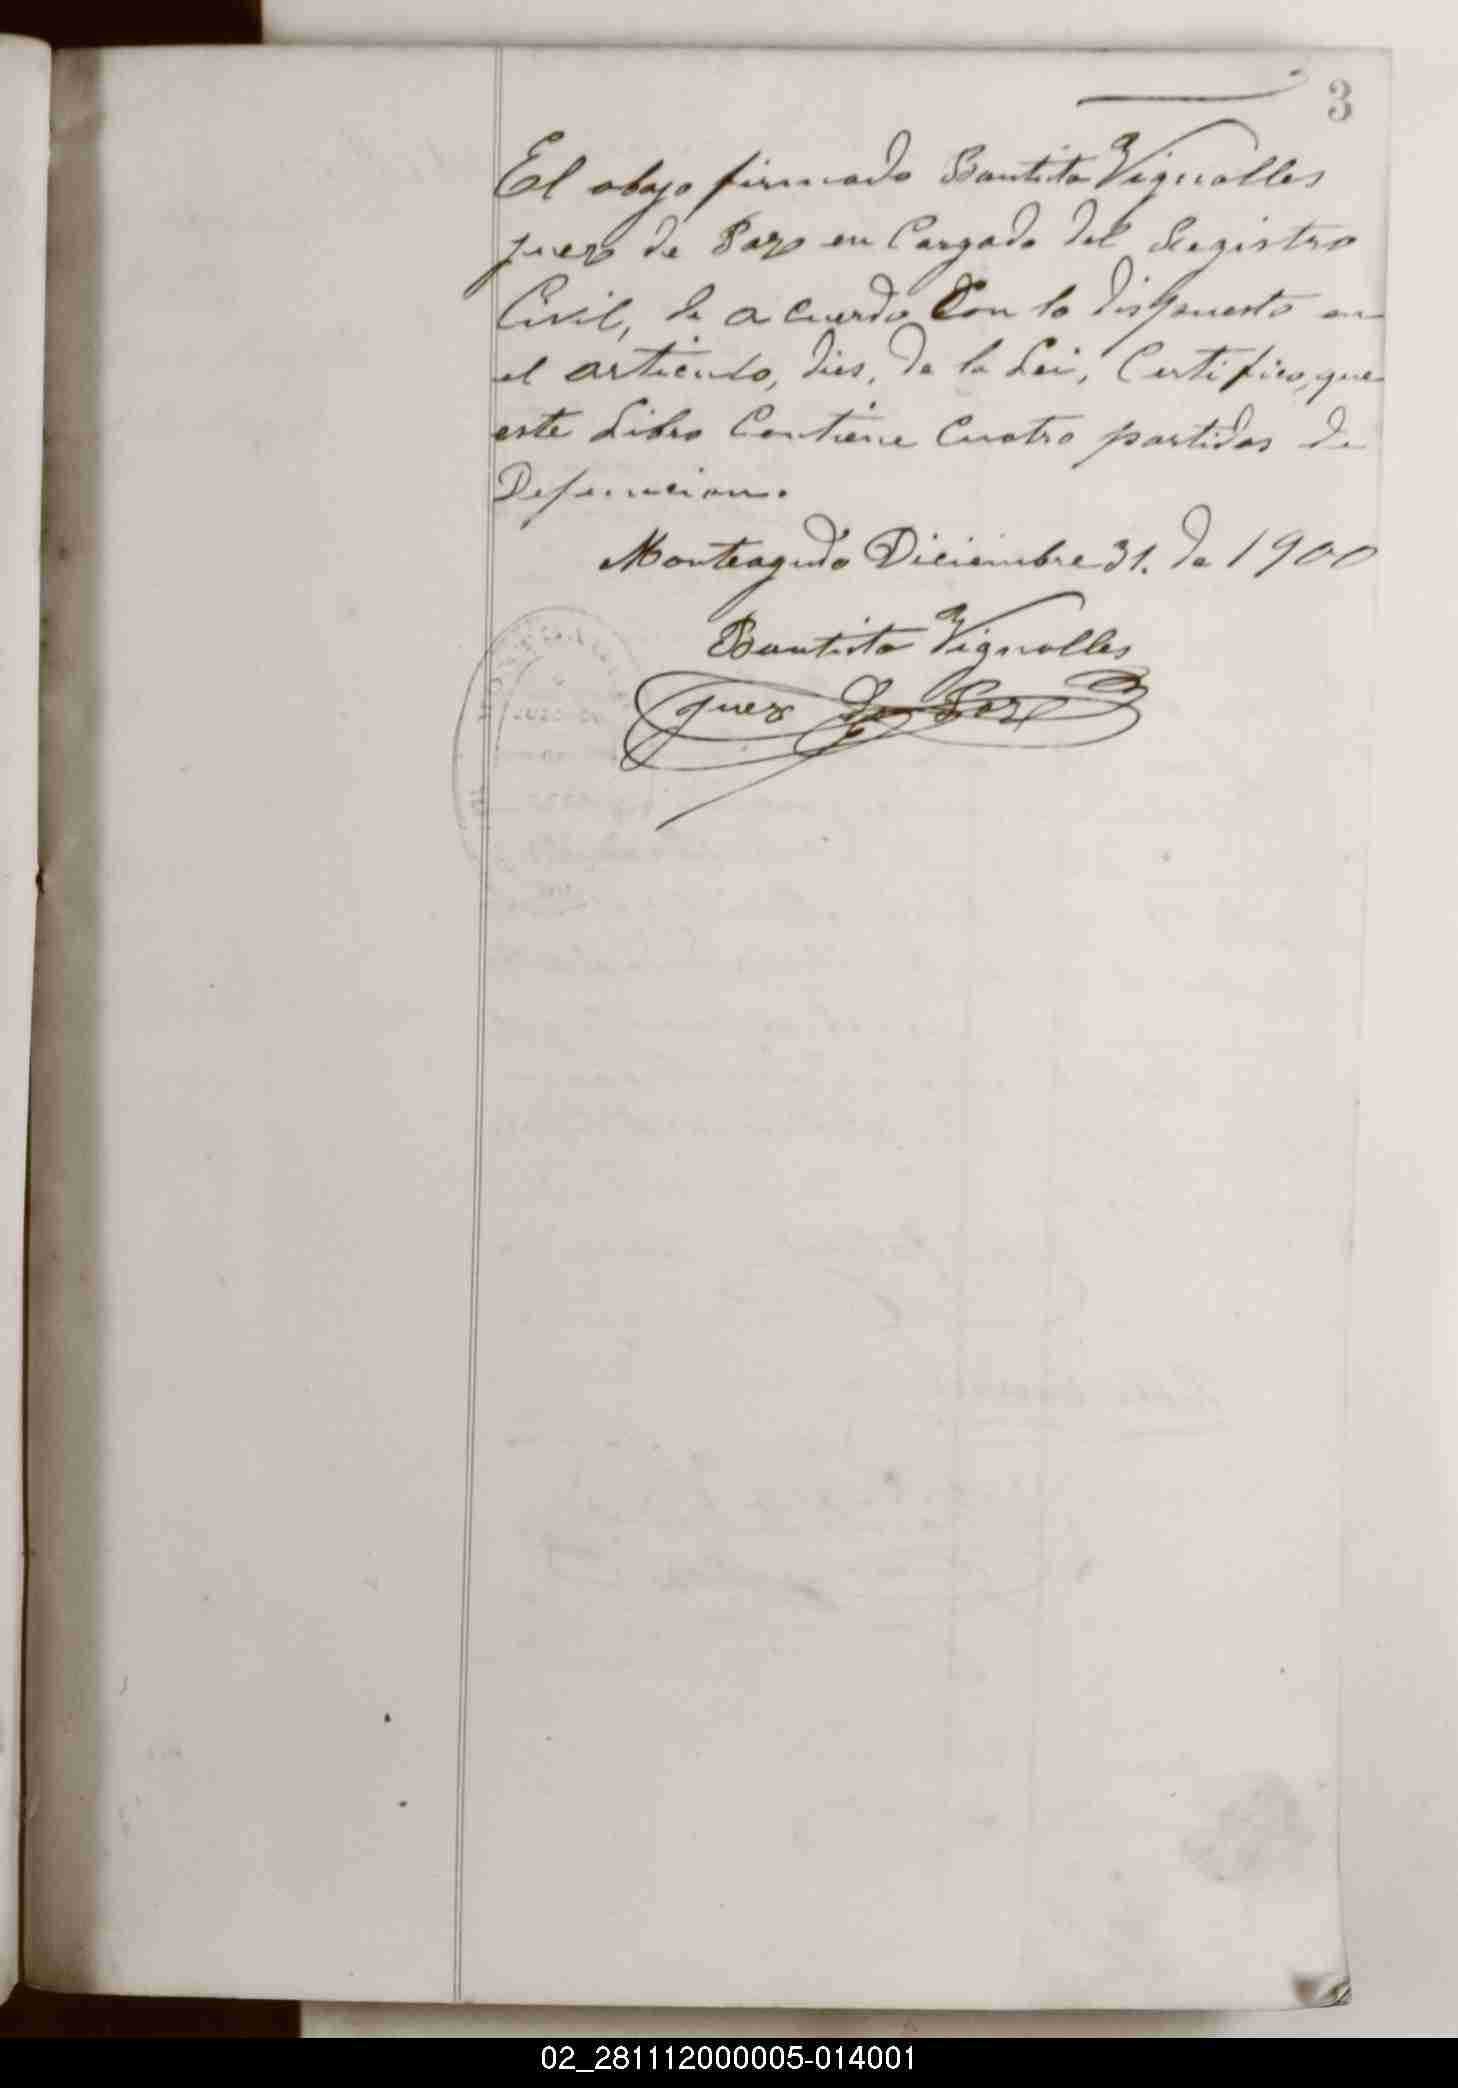 3
El abajo firmado Bautista Vignolles
juez de Paz en Cargado del Registro
Civil, de acuerdo Con lo dispuesto en
el articulo, dies, de la Lei, Certifico, que
este Libro Contiene Cuatro partidas de
Defuncion.
Monteagudo Diciembre 31. de 1900
Bautista Vignolles
juez de Paz
02_281112000005-014001